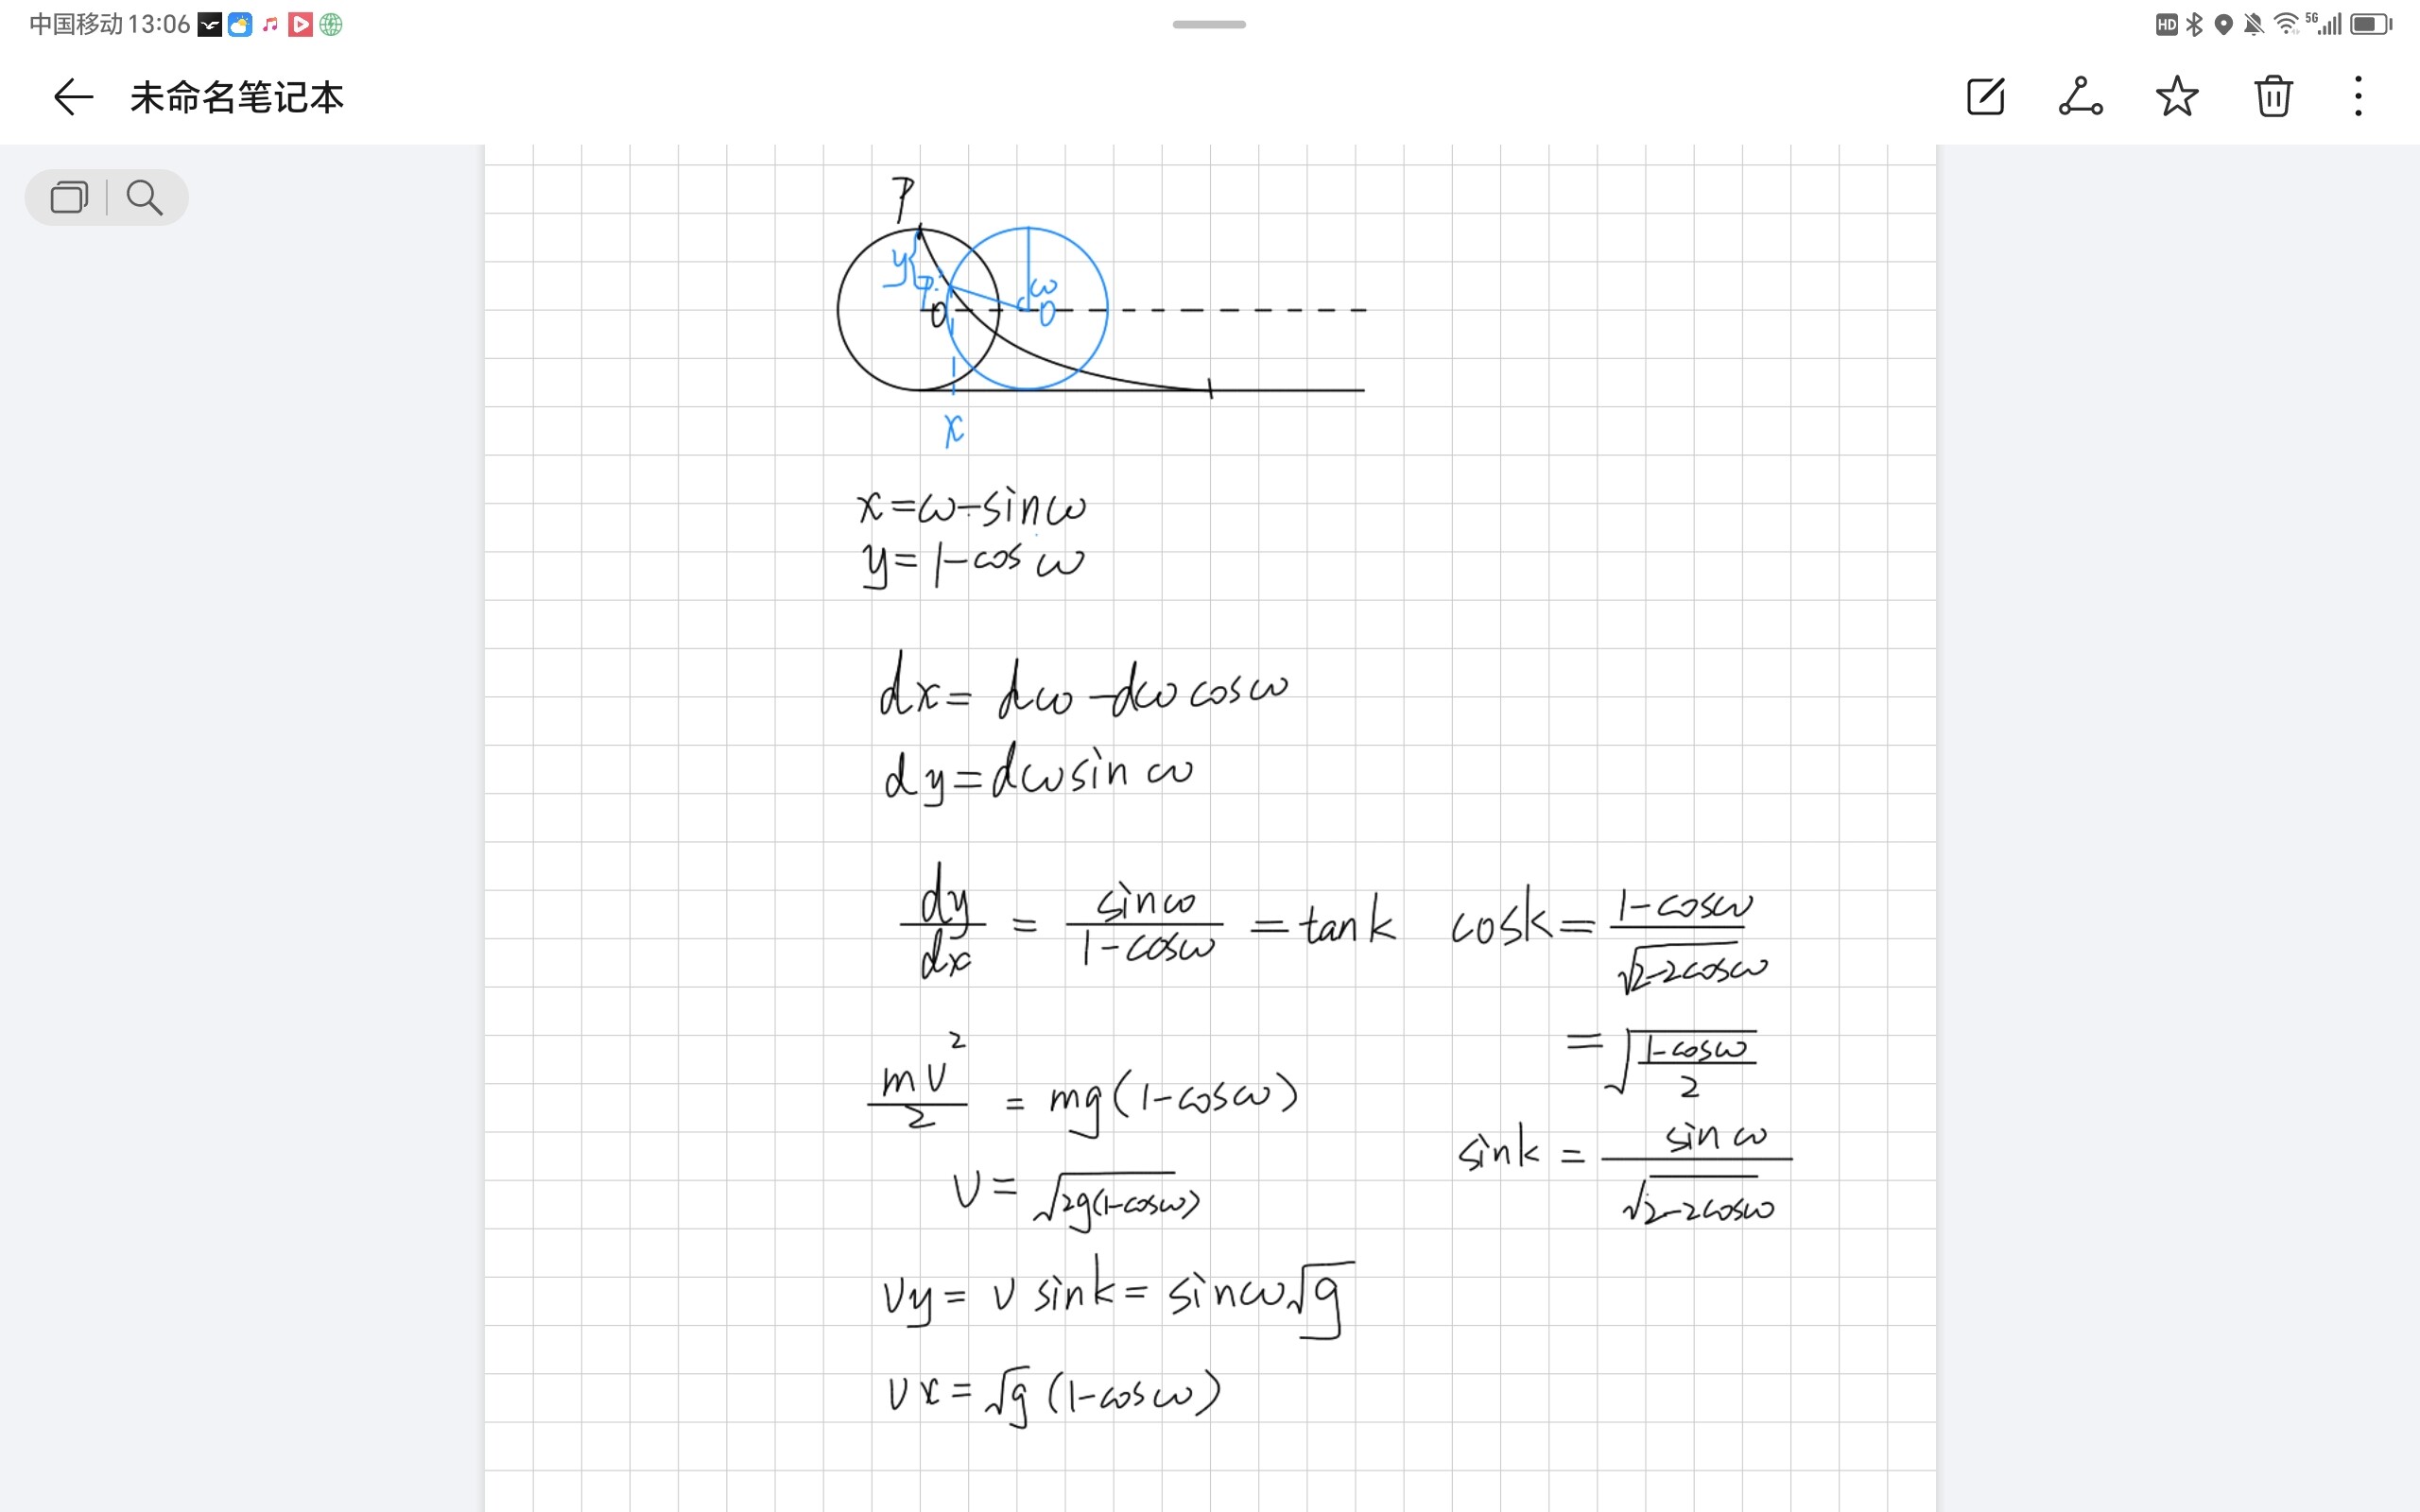 中国移动 13:06
HD 5G
未命名笔记本
P
y
P
ω
O
O
x
x=ω-sinω
y=1-cosω
dx=dω-dωcosω
dy=dωsinω
dy/dx = sinω/(1-cosω) = tank cosk = (1-cosω)/√(2-2cosω)
= √((1-cosω)/2)
mv²/2 = mg(1-cosω)
sink = sinω/√(2-2cosω)
v = √(2g(1-cosω))
vy = v sink = sinω√g
vx = √g (1-cosω)